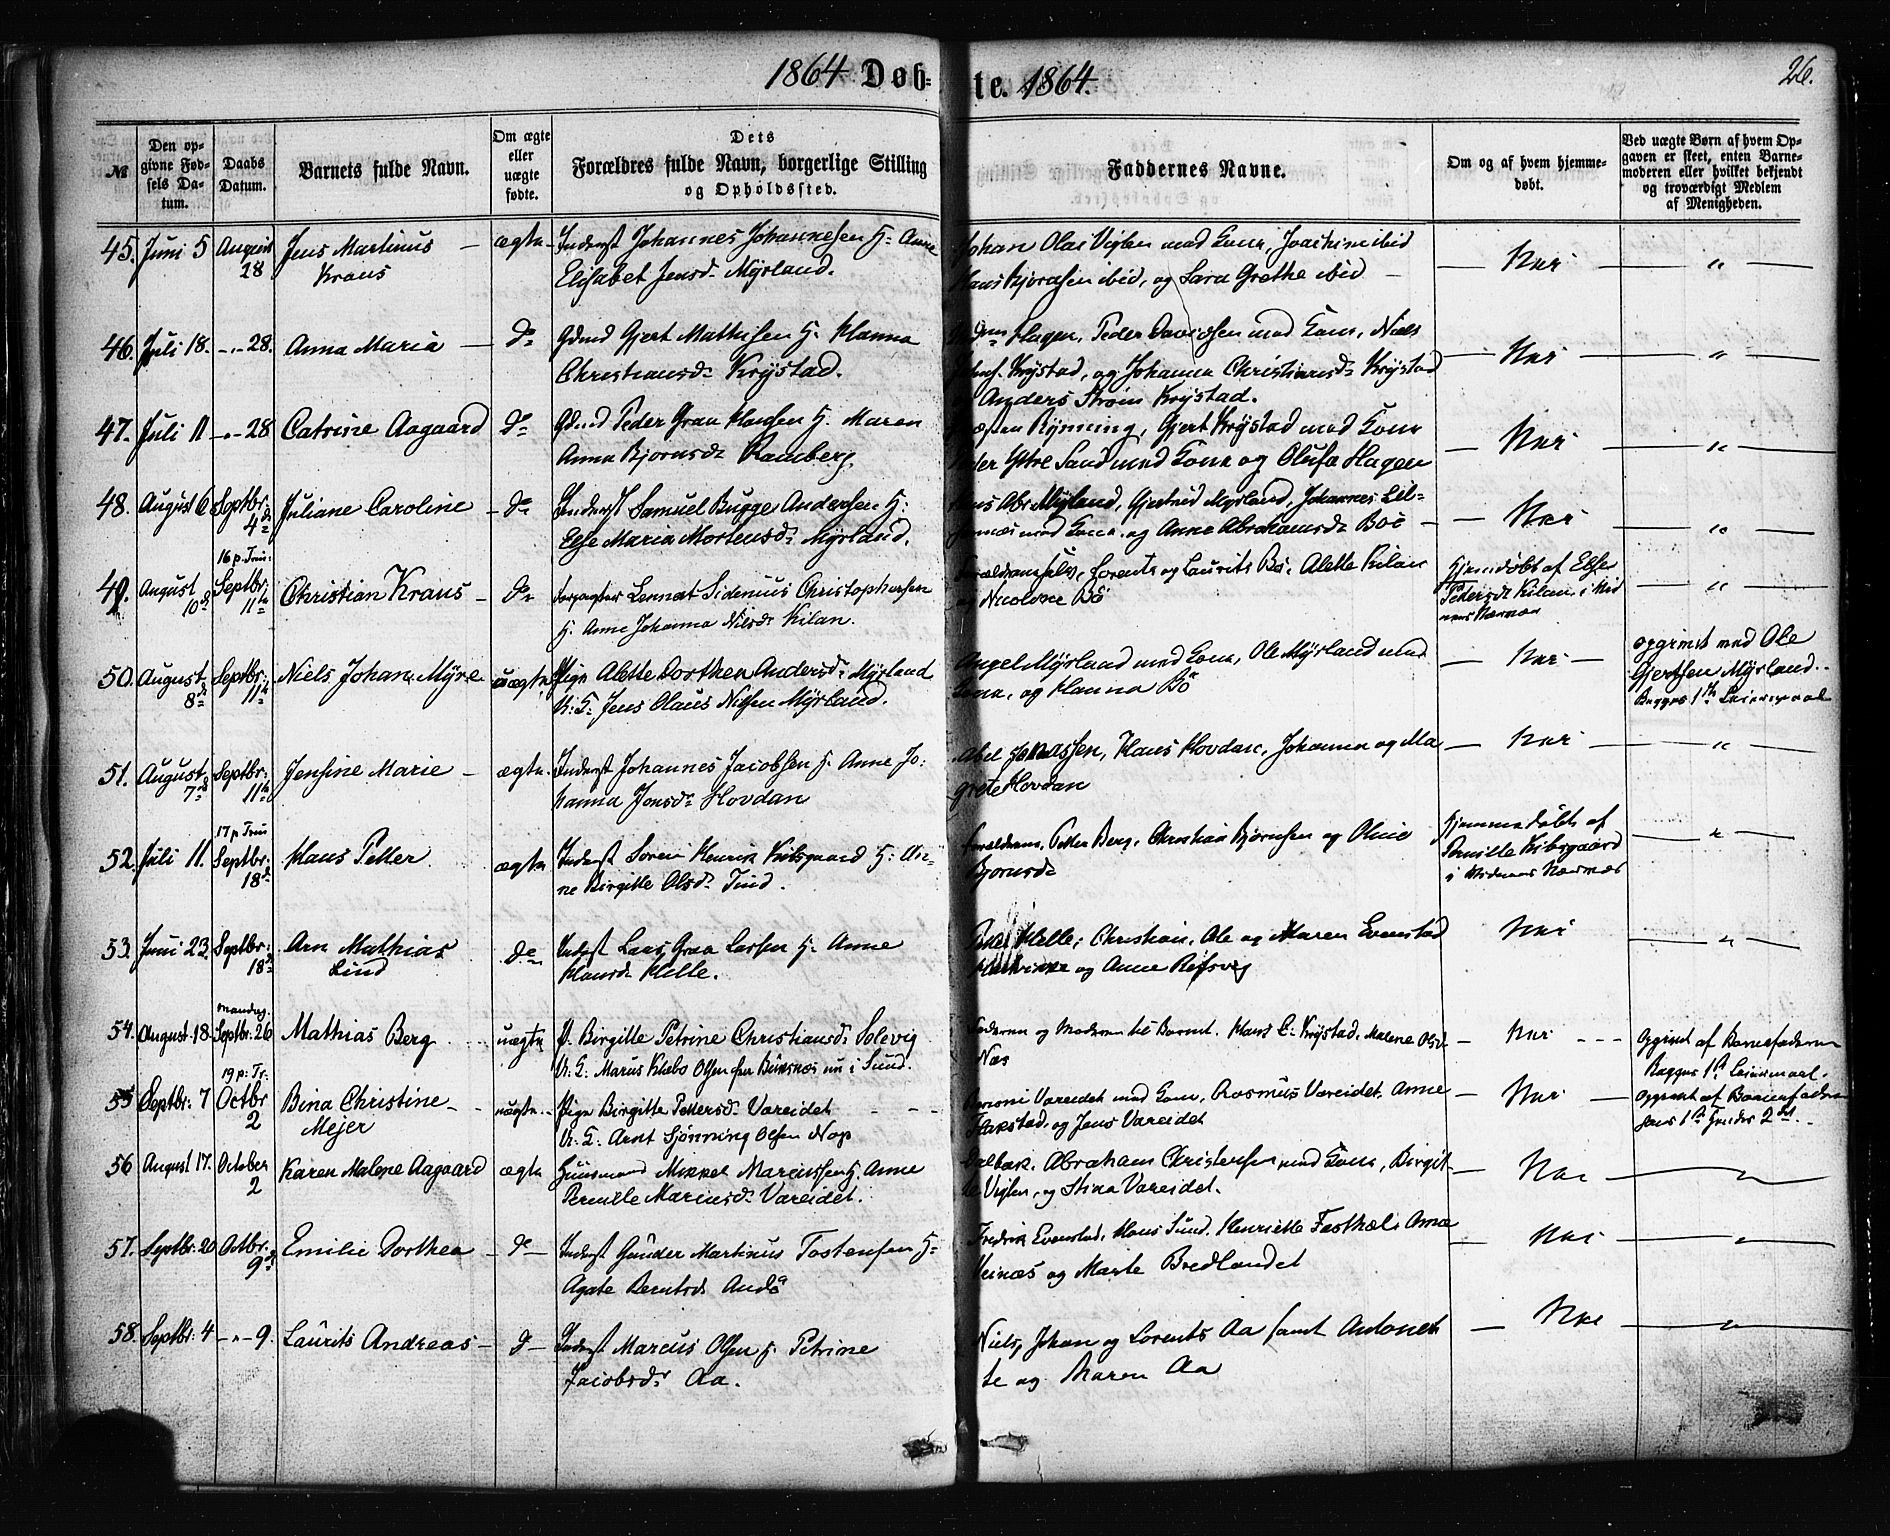 1864 Døb-
te. 1864.
26.
№
Den op-
givne Fød-
sels Da-
tum.
Daabs
Datum.
Barnets fulde Navn.
Om ægte
eller
uægte
fødte.
Dets
Forældres fulde Navn, borgerlige Stilling
og Opholdssted.
Faddernes Navne.
Om og af hvem hjemme-
døbt.
Ved uægte Børn af hvem Op-
gaven er skeet, enten Barne-
moderen eller hvilket bekjendt
og troværdigt Medlem
af Menigheden.
45. Juni 5 August 28 Jens Martinus Kraus ægte Inderst Johannes Johannesen H: Anne
Elisabet Jensd. Myrland.
Johan Olai Viglen med Kone, Joachim ibid
Hans Kjordsen ibid, og Sara Grethe ibid
Nei "
46. Juli 18. -"- 28. Anna Maria do Gdmd Gjert Mathisen H. Hanna
Christiansd. Krystad.
Hagen, Peder Davidsen med Kone, Niels
Krystad, og Johanna Christiansd. Krystad
Anders Strøm Krystad.
Nei "
47. Juli 11 -"- 28 Catrine Aagaard do Gdmd Peder Grau Hansen H. Maren
Anna Bjørnsd. Ramberg.
Rynning, Gjert Krystad med Kone
Peder Ytre Sand med Kone og Olufa Hagen
Nei "
48. August 6 Septbr 4de Juliane Caroline do Inderst Samuel Bugge Andersen H:
Else Maria Mortensd. Myrland.
Abr. Myrland, Gjertrud Myrland, Johannes Lil-
med Kone og Anne Abrahamsd. Bøe
Nei "
49. August 10de 16 p. Trin: Septbr. 11te Christian Kraus do Forpagter Lennat Sidenius Christophersen
H. Anne Johanna Nilsd. Kilan.
Forældrene selv, Lorents og Laurits Bø, Alette Kilan
og Nicoline Bö
Hjemdøbt af Else
Pedersd. Kilan i Vid
neres Nærvær
"
50. August 8de Septbr. 11te Niels Johan Myre uægte Pige Alette Dorthea Andersd. Myrland
U: G: Jens Olaus Nilsen Myrland.
Angel Myrland med Kone, Ole Myrland med
Kone, og Hanna Bö
Nei
opgivet med Ole
Gjertsen Myrland.
Begges 1ste Leiermaal
51. August 7de Septbr. 11te Jensine Marie ægte Inderst Johannes Jacobsen H. Anne Jo:
hanna Jonsd. Hovdan
Abel Jonassen, Hans Hovdan, Johanna og Ma
grete Hovdan
Nei "
52. Juli 11. 17 p. Trin Septbr. 18de Hans Petter ægte Inderst Søren Henrik Kibsgaard H: An-
ne Birgitte Olsd. Tind.
Forældrene, Petter Berg, Christian Bjørnsen og Oline
Bjørnsd.
Hjemmedøbt af
Pernille Kibsgaard
i Vidneres Nærvær
"
53. Juni 23 Septbr. 18de Arn Mathias Lind do Inderst Lars Graa Larsen H. Anne
Hansd. Helle.
Helle, Christian, Ole og Maren Evenstad
og Anne Refsvig
Nei "
54. August 18 Mandag. Septbr: 26 Mathias Berg uægte P. Birgitte Petrine Christiansd. Solevig
U. G. Marius Klebo Olsen fra Buksnæs nu i Sund.
Faderen og Moderen til Barnet. Hans C. Krystad, Malene Olsd.
Næs
Nei
Opgivet af Barnefaderen
Begges 1ste Leiermaal.
55 Septbr: 7 19 p: Tr: Octbr 2 Bina Christine Mejer uægte Pige Birgitte Pettersd. Vareidet
U. G. Arnt Sjønning Olsen Nap
Vareidet med Kone, Rasmus Vareidet, Anne
Flakstad, og Jens Vareidet
Nei
opgivet af Barnefaderen
hans 1ste hendes 2det
56 August 17. October 2 Karen Malene Aagaard ægte Huusmand Mikkel Marcussen H. Anne
Pernille Mariusd. Vareidet.
Dalbak, Abraham Christensen med Kone, Birgit-
te Viglen, og Stina Vareidet.
Nei "
57. Septbr. 20 Octbr. 9de Emilie Dorthea do Inderst Gunder Martinus Tostensen H:
Agate Berntsd. Andø
Fredrik Evenstad, Hans Sund, Henriette Festhæl, Anne
Veinæs og Marte Bredlandet
Nei "
58. Septbr: 4 -"- 9. Laurits Andreas do Inderst Marcus Olsen H. Petrine
Jacobsd. Aa.
Niels, Johan og Lorents Aa samt Antonet
te og Maren Aa
Nei "